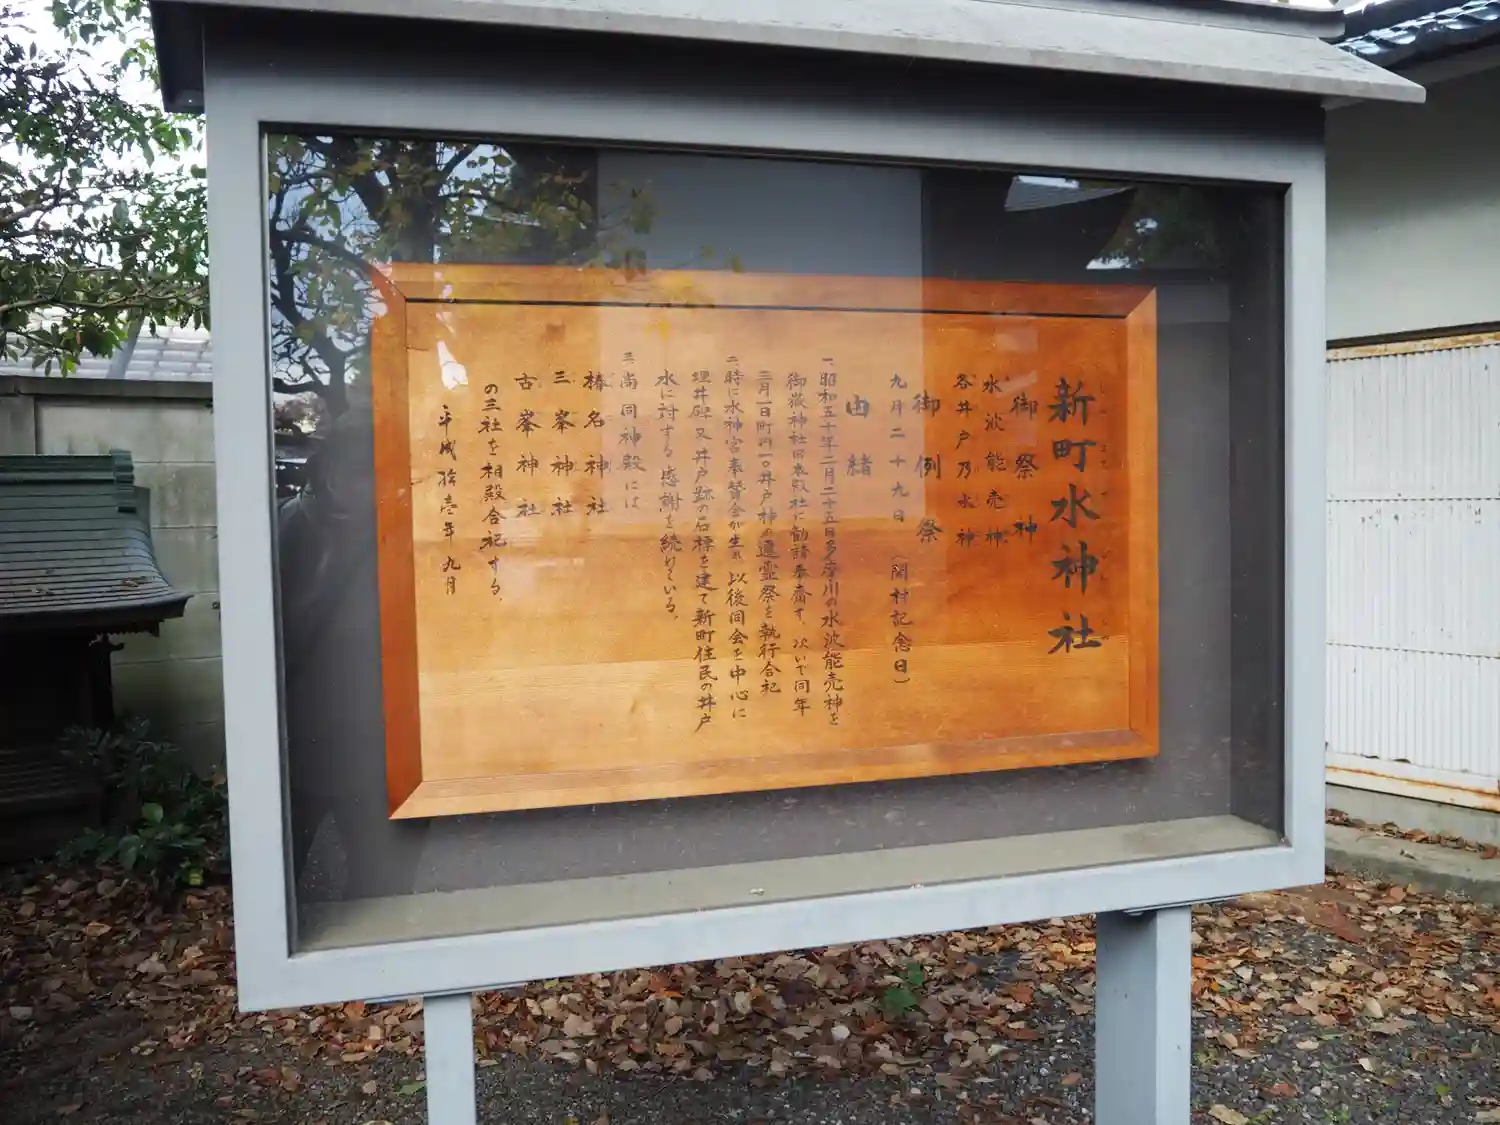 新町水神社
御祭神
水波能売神
各井戸乃水神
御例祭
九月二十九日（開村記念日）
由緒
一、昭和五十年二月二十五日多摩川の水波能売神を
御嶽神社旧本殿社に勧請奉斎す、次いで同年
三月一日町内一〇井戸神の遷霊祭を執行合祀
二、時に水神宮奉賛会が生れ以後同会を中心に
埋井碑又井戸跡の石標を建て新町住民の井戸
水に対する感謝を続けている。
三、尚同神殿には
榛名神社
三峯神社
古峯神社
の三社を相殿合祀する。
平成拾壱年九月